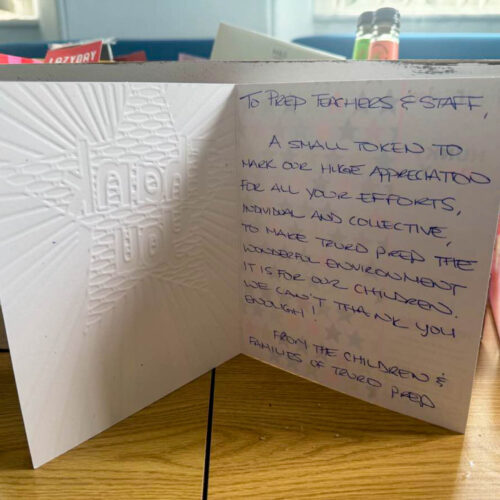 LAZYDAY
Thank
you
TO PREP TEACHERS & STAFF,
A SMALL TOKEN TO
MARK OUR HUGE APPRECIATION
FOR ALL YOUR EFFORTS,
INDIVIDUAL AND COLLECTIVE,
TO MAKE TRURO PREP THE
WONDERFUL ENVIRONMENT
IT IS FOR OUR CHILDREN.
WE CAN'T THANK YOU
ENOUGH!
FROM THE CHILDREN &
FAMILIES OF TRURO PREP